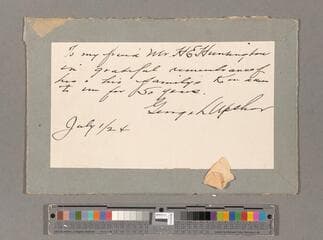 To my friend Mr. H E Huntington
in grateful remembrance of
his & his family's kindness
to me for 50 years.
George L Upshur
July 1/24